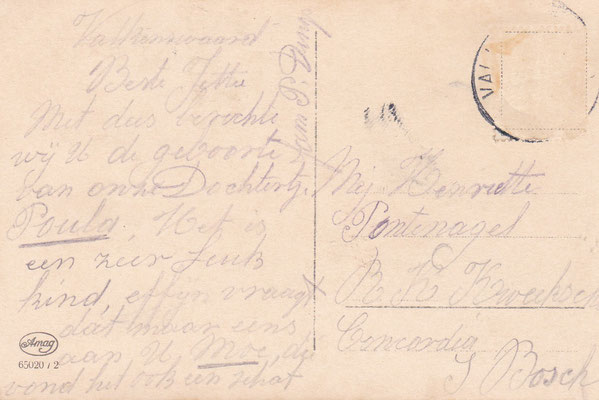 Valkenswaard
Beste Jettie
Met dees berichte
wij U de geboorte
van onze Dochtertje
Poula. Het is
een zeer leuk
kind, effijn vraagt
dat maar eens
aan U Moe, die
vond het ook een schat
Fam P.
VAL
Mej Henriette
Pontenagel
R K Kweeksch
Concordia
S Bosch
Amag
65020 / 2